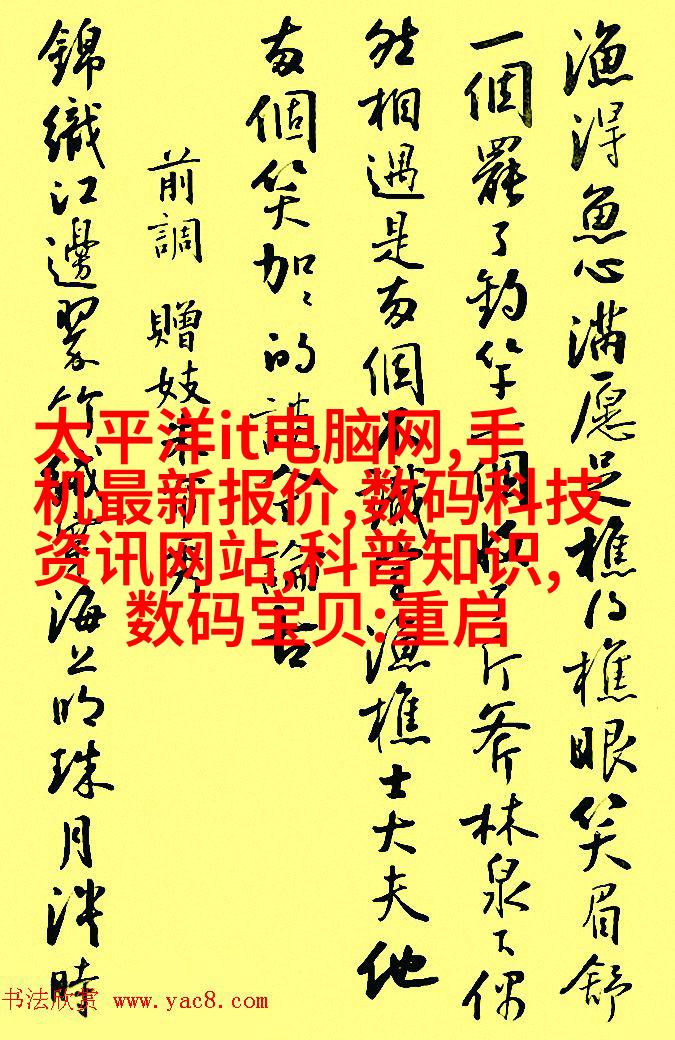 渔得鱼心满愿足樵得樵眼笑眉舒
一個罷了釣竿一個收了斤斧林泉下偶
然相遇是兩個不識字漁樵士大夫他
兩個笑加〻的談今論古
前調 贈妓朱帘秀
錦織江邊翠竹絨穿海上明珠月淡時
太平洋it电脑网,手
机最新报价,数码科技
资讯网站,科普知识,
数码宝贝:重启
书法欣赏 www.yac8.com